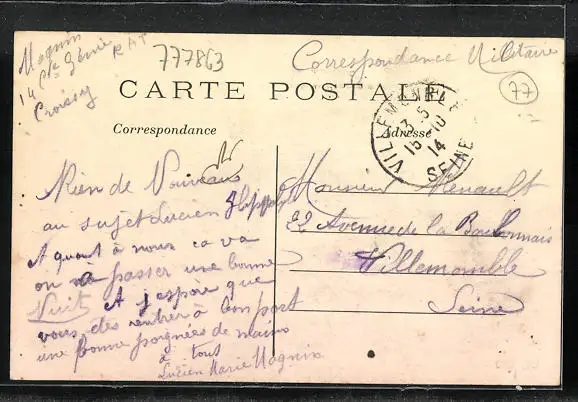 Magnin
14 Cie Génie
Croissy
777863
Correspondance Militaire
77
CARTE POSTALE
Correspondance
Adresse
VILLEMOMBLE
3 5
15 10
14
SEINE
Rien de Nouveau
au sujet Lucien Hippolyte
A quant à nous ca va
on va passer une bonne
Nuit A j'espère que
vous êtes rentrer à bon port
une bonne poignées de mains
à tous
Lucien Marie Magnin
Monsieur Renault
22 Avenue de la
Villemomble
Seine